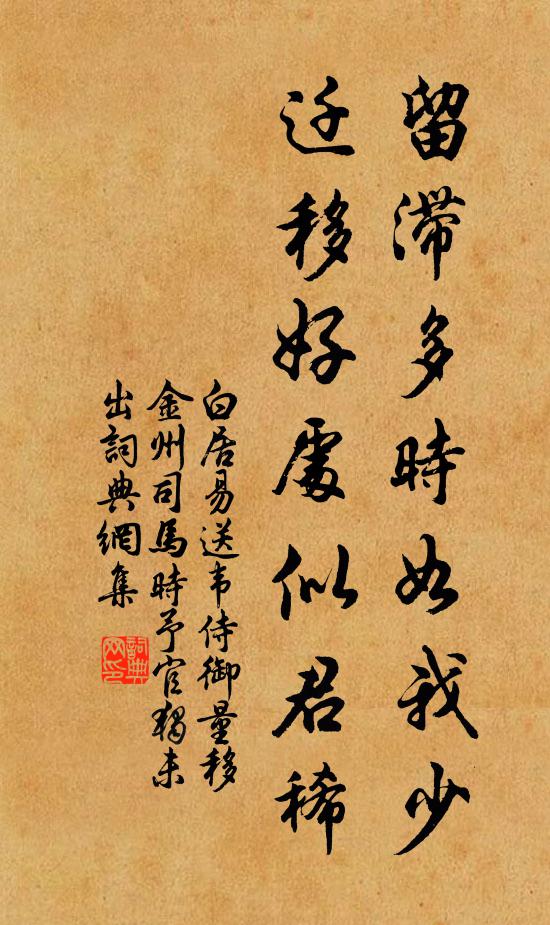 留滯多時如我少
迁移好處似君稀
白居易送韦侍御量移
金州司馬時予官獨未
出詞典網集
詞典
网印